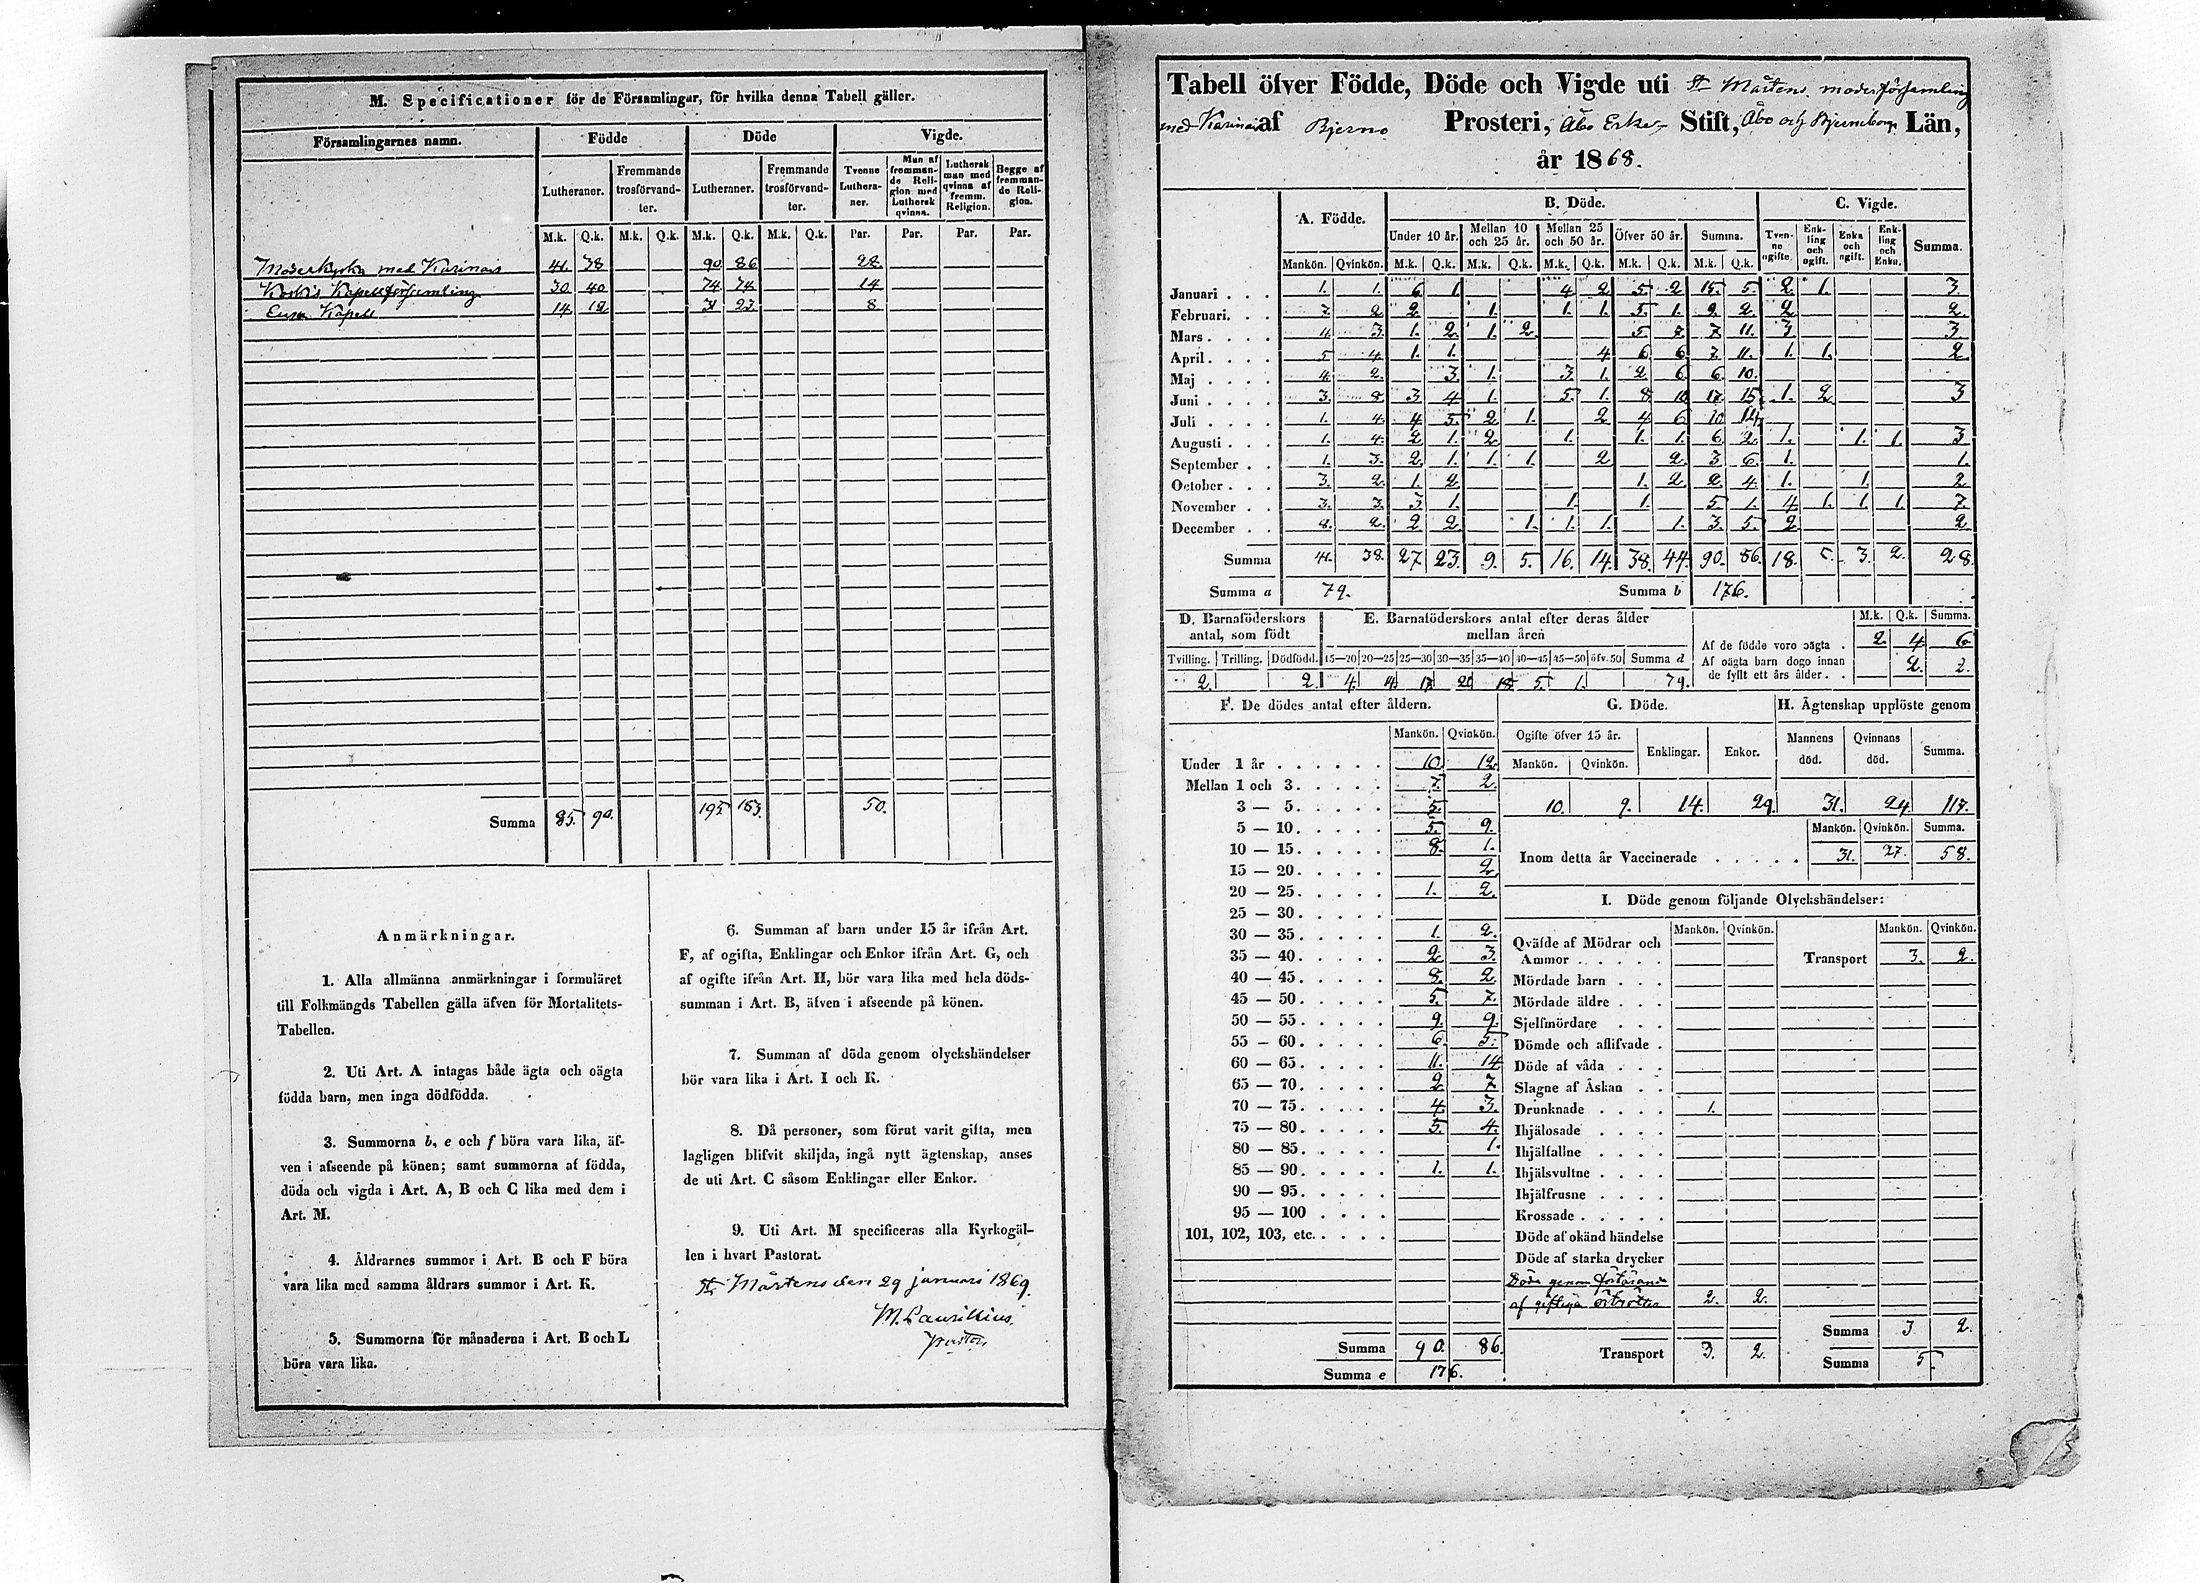 M. Specificationer för de Församlingar, för hvilka denna Tabell gäller.
Församlingarnes namn. Födde Döde Vigde.
Lutheraner. Fremmande trosförvandter. Lutheraner. Fremmande trosförvandter. Tvenne Lutheraner. Man af fremmande Religion med Luthersk qvinna. Luthersk man med qvinna af fremm. Religion. Begge af fremmande Religion.
M.k. Q.k. M.k. Q.k. M.k. Q.k. M.k. Q.k. Par. Par. Par. Par.
Moderkyrka med Karinais 41. 38 90. 86 28.
Koskis Kapellförsamling 30 40 74 74 14
Kapell 14. 12 31 23. 8.
Summa 85. 90. 195 183. 50.
Anmärkningar.
1. Alla allmänna anmärkningar i formuläret
till Folkmängds Tabellen gälla äfven för Mortalitets-
Tabellen.
2. Uti Art. A intagas både ägta och oägta
födda barn, men inga dödfödda.
3. Summorna b, e och f böra vara lika, äf-
ven i afseende på könen; samt summorna af födda,
döda och vigda i Art. A, B och C lika med dem i
Art. M.
4. Åldrarnes summor i Art. B och F böra
vara lika med samma åldrars summor i Art. K.
5. Summorna för månaderna i Art. B och L
böra vara lika.
6. Summan af barn under 15 år ifrån Art.
F, af ogifta, Enklingar och Enkor ifrån Art. G, och
af ogifte ifrån Art. H, bör vara lika med hela döds-
summan i Art. B, äfven i afseende på könen.
7. Summan af döda genom olyckshändelser
bör vara lika i Art. I och K.
8. Då personer, som förut varit gifta, men
lagligen blifvit skiljda, ingå nytt ägtenskap, anses
de uti Art. C såsom Enklingar eller Enkor.
9. Uti Art. M specificeras alla Kyrkogäl-
len i hvart Pastorat.
St Mårtens den 29 januari 1869.
M. Laurellius.
pastor
Tabell öfver Födde, Döde och Vigde uti St Mårtens moderförsamling
med Karinais af Bjerno Prosteri, Åbo Erke- Stift, Åbo och Björneborgs Län,
år 1868.
A. Födde. B. Döde. C. Vigde.
Under 10 år. Mellan 10 och 25 år. Mellan 25 och 50 år. Öfver 50 år. Summa. Tvenne ogifte. Enkling och ogift. Enka och ogift. Enkling och Enka. Summa.
Mankön. Qvinkön. M.k. Q.k. M.k. Q.k. M.k. Q.k. M.k. Q.k. M.k. Q.k.
Januari 1. 1. 6 1. 4 2 5. 2 15. 5. 2 1. 3.
Februari. 7. 2 2. 1. 1. 1. 5. 1. 2. 2
Mars 3. 1. 2 1. 2. 5 7 7 11. 3 3.
April 5 4. 1. 1. 4 6 6 7. 11. 1. 1. 2
Maj 4. 2. 3. 1. 3. 1. 2 6. 6. 10.
Juni 3. 3 4 1. 5. 1. 8 10 17. 15. 1. 2 3
Juli 1. 4. 4 5. 2 1. 2 4 6 10 14.
Augusti 1. 4. 2 1. 2 1. 1. 1. 6 2. 1. 1. 1. 3
September 1. 3. 2 1. 1. 1. 2 2. 3 6. 1. 1.
October 3. 2. 1. 2 1. 2 2 4. 1. 1. 2
November 3. 3. 3 1. 1. 1. 5. 1. 4 1. 1. 1. 7.
December 2. 2 2 1. 1. 1. 1. 3. 5. 2 2
Summa 41. 38. 27 23. 9. 5. 16. 14. 38. 44. 90. 86. 18. 5. 3. 2. 28.
Summa a 79. Summa b 176.
D. Barnaföderskors antal, som födt
E. Barnaföderskors antal efter deras ålder mellan åren
M.k. Q.k. Summa.
Tvilling. Trilling. Dödfödd. 15—20 20—25 25—30 30—35 35—40 40—45 45—50 öfv. 50 Summa d
2. 2. 4. 14. 17. 20 18 5. 1. 79.
Af de födde voro oägta 2 4 6
Af oägta barn dogo innan de fyllt ett års ålder 2. 2.
F. De dödes antal efter åldern.
Mankön. Qvinkön.
Under 1 år 10. 12.
Mellan 1 och 3. 7. 2.
3 — 5. 5.
5 — 10. 5. 9.
10 — 15. 8. 1.
15 — 20. 2
20 — 25. 1. 2.
25 — 30.
30 — 35. 1. 2.
35 — 40. 2 3.
40 — 45. 8. 2.
45 — 50. 5. 7.
50 — 55. 9. 9.
55 — 60. 6. 5.
60 — 65. 11. 14
65 — 70. 2 7.
70 — 75. 4. 3.
75 — 80. 5. 4.
80 — 85. 1.
85 — 90. 1. 1.
90 — 95.
95 — 100
101, 102, 103, etc.
Summa 90. 86.
Summa e 176.
G. Döde.
Ogifte öfver 15 år. Enklingar. Enkor.
Mankön. Qvinkön.
10. 9. 14. 29.
H. Ägtenskap upplöste genom
Mannens död. Qvinnans död. Summa.
31. 24. 117.
Mankön. Qvinkön. Summa.
Inom detta år Vaccinerade 31. 27. 58.
I. Döde genom följande Olyckshändelser:
Mankön. Qvinkön. Mankön. Qvinkön.
Qväfde af Mödrar och Ammor
Transport 3. 2.
Mördade barn
Mördade äldre
Sjelfmördare
Dömde och aflifvade
Döde af våda
Slagne af Åskan
Drunknade 1.
Ihjälosade
Ihjälfallne
Ihjälsvultne
Ihjälfrusne
Krossade
Döde af okänd händelse
Döde af starka drycker
Döde genom förtärande
af giftiga örtrötter 2. 2.
Transport 3. 2.
Summa 3 2.
Summa 5.